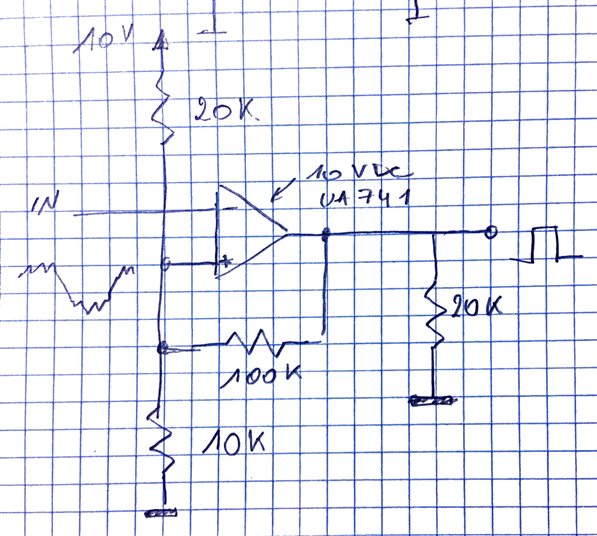 10V
20K
10 VDC
UA741
IN
-
+
20K
100K
10K